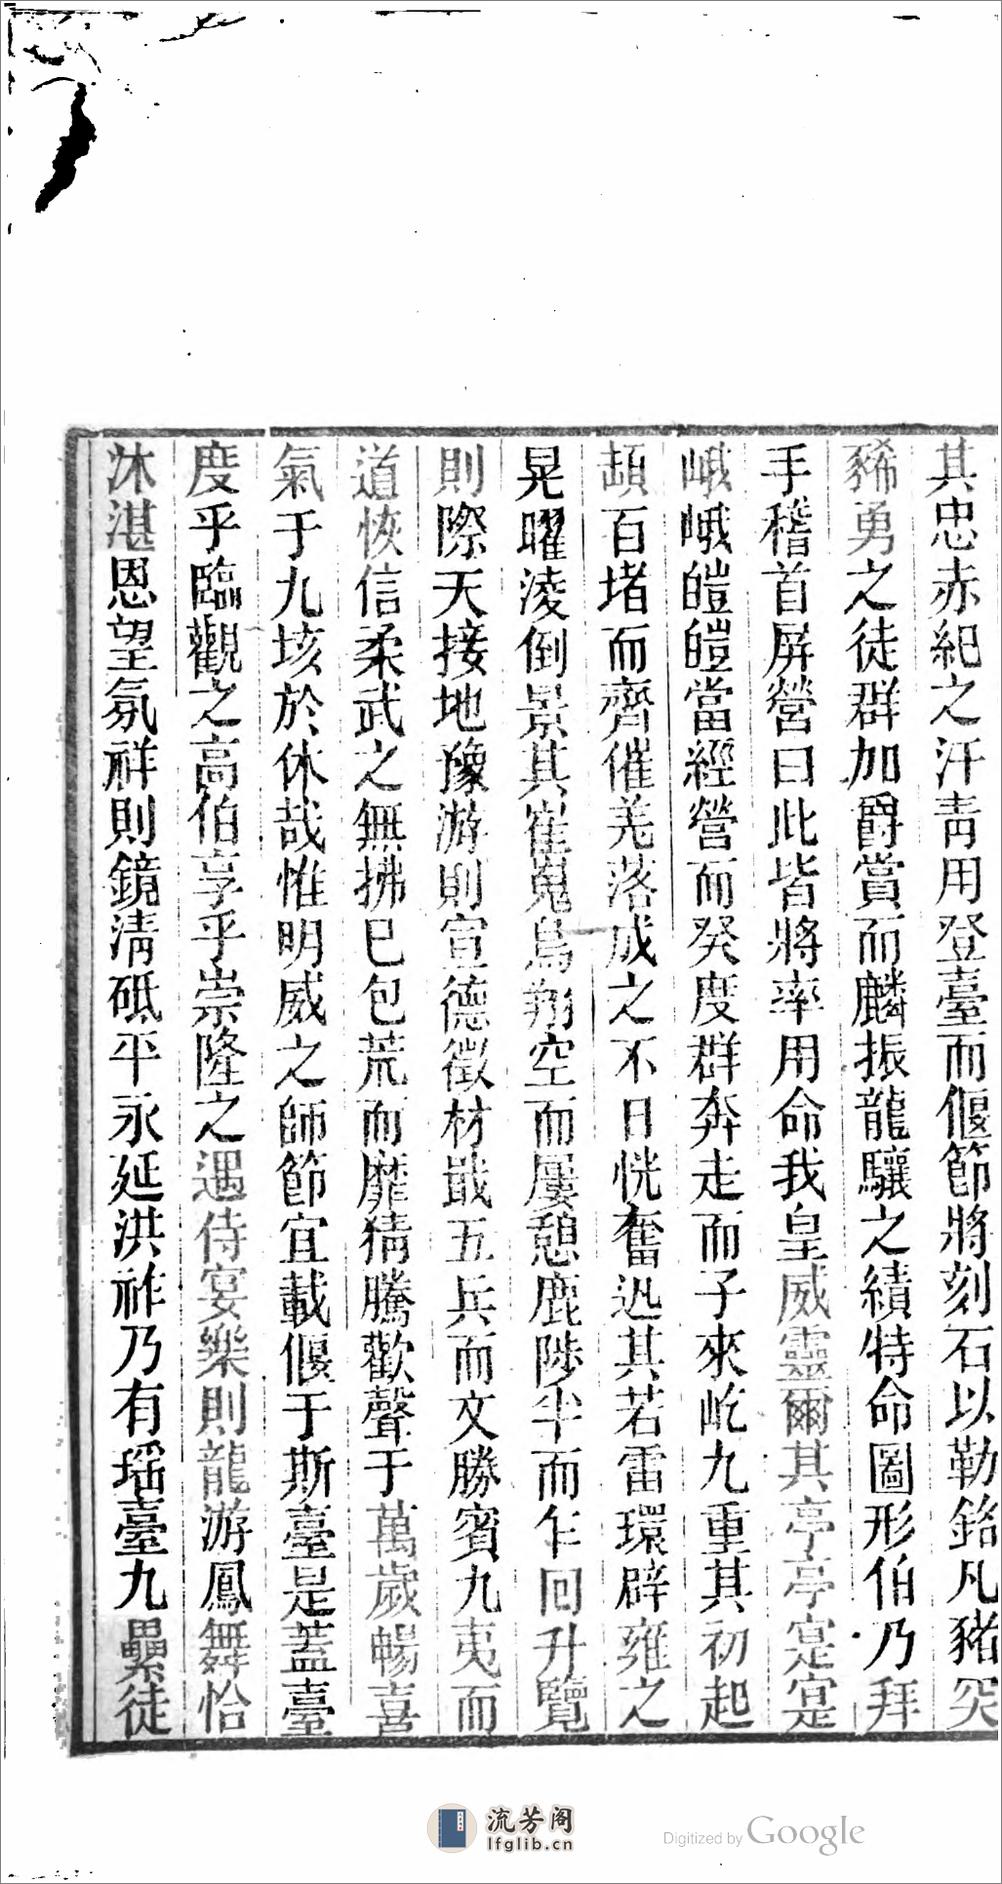 其忠赤紀之汗靑用登臺而偃節將刻石以勒銘凡豬突
豨勇之徒群加爵賞而麟振龍驤之績特命圖形伯乃拜
手稽首屏營曰此皆將率用命我皇威靈爾其亭亭寔寔
峨峨皚皚當經營而癸度群奔走而子來屹九重其初起
頡百堵而齊催羌落成之不日恍奮迅其若雷環辟雍之
晃曜淩倒景其崔嵬鳥翔空而屢憩鹿陟半而乍回升覽
則際天接地豫游則宣德徵材戢五兵而文勝賓九夷而
道恢信柔武之無拂巳包荒而靡猜騰歡聲于萬歲暢喜
氣于九垓於休哉惟明威之師節宜載偃于斯臺是蓋臺
度乎臨觀之高伯享乎崇隆之遇侍宴樂則龍游鳳舞恰
沐湛恩望氛祥則鏡淸砥平永延洪祚乃有瑶臺九纍徒
流芳阁
lfglib.cn
Digitized by Google